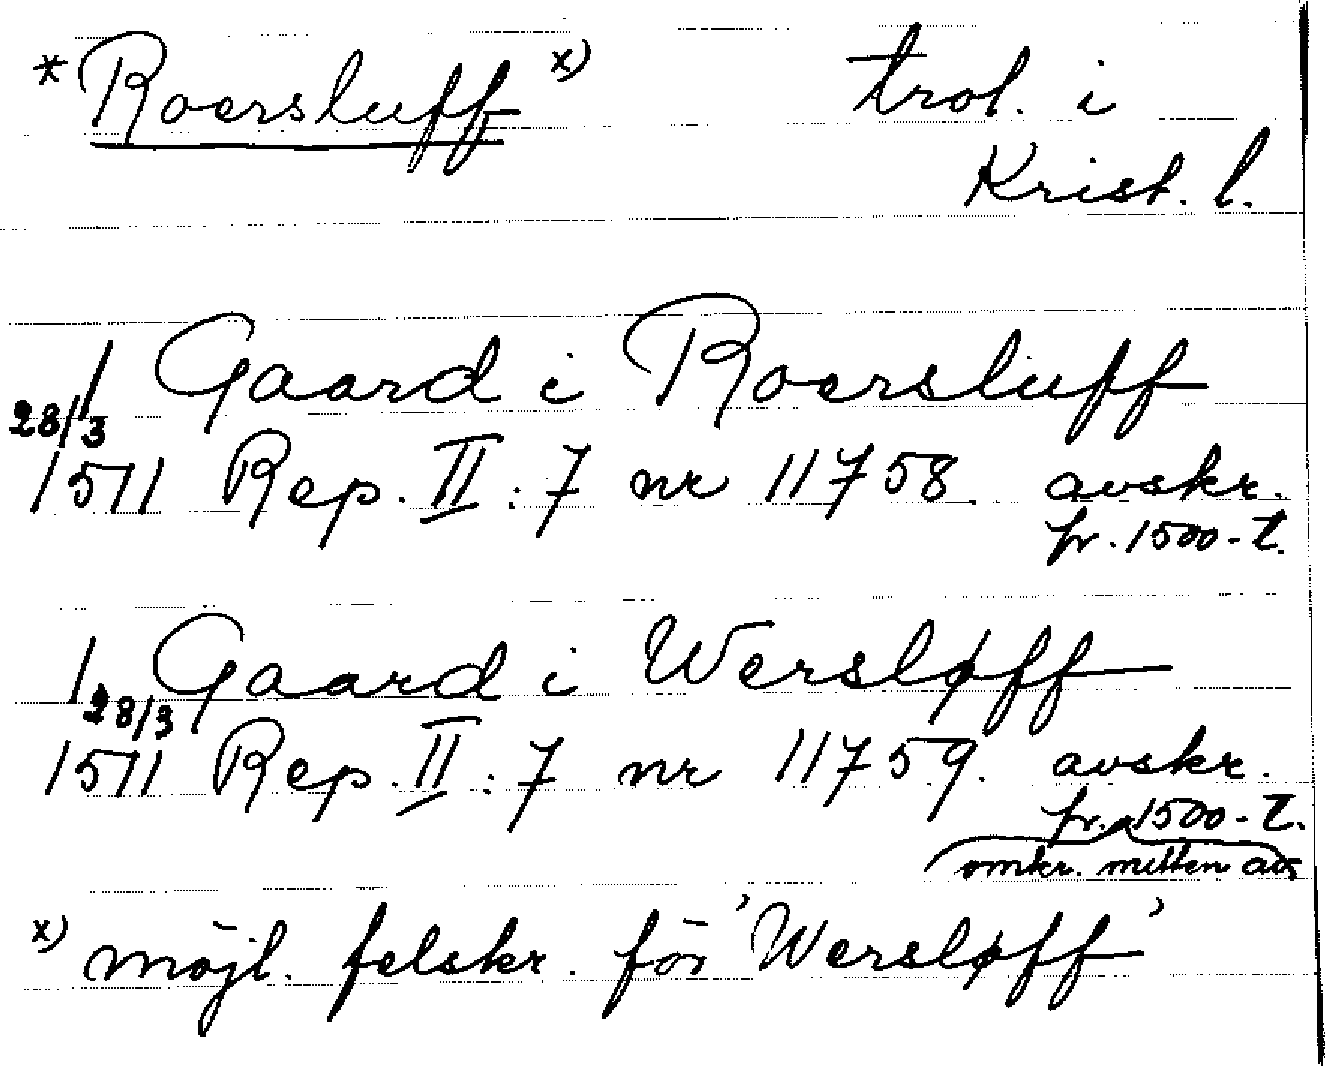 * Roersluff x) trol. i
Krist. l.
1 Gaard i Roersluff
28/3
1511 Rep. II : 7 nr 11758. avskr.
fr. 1500-t.
1 Gaard i Wersløff
28/3
1511 Rep. II : 7 nr 11759. avskr.
fr. 1500-t.
omkr. mitten av
x) möjl. felskr. för 'Wersløff'